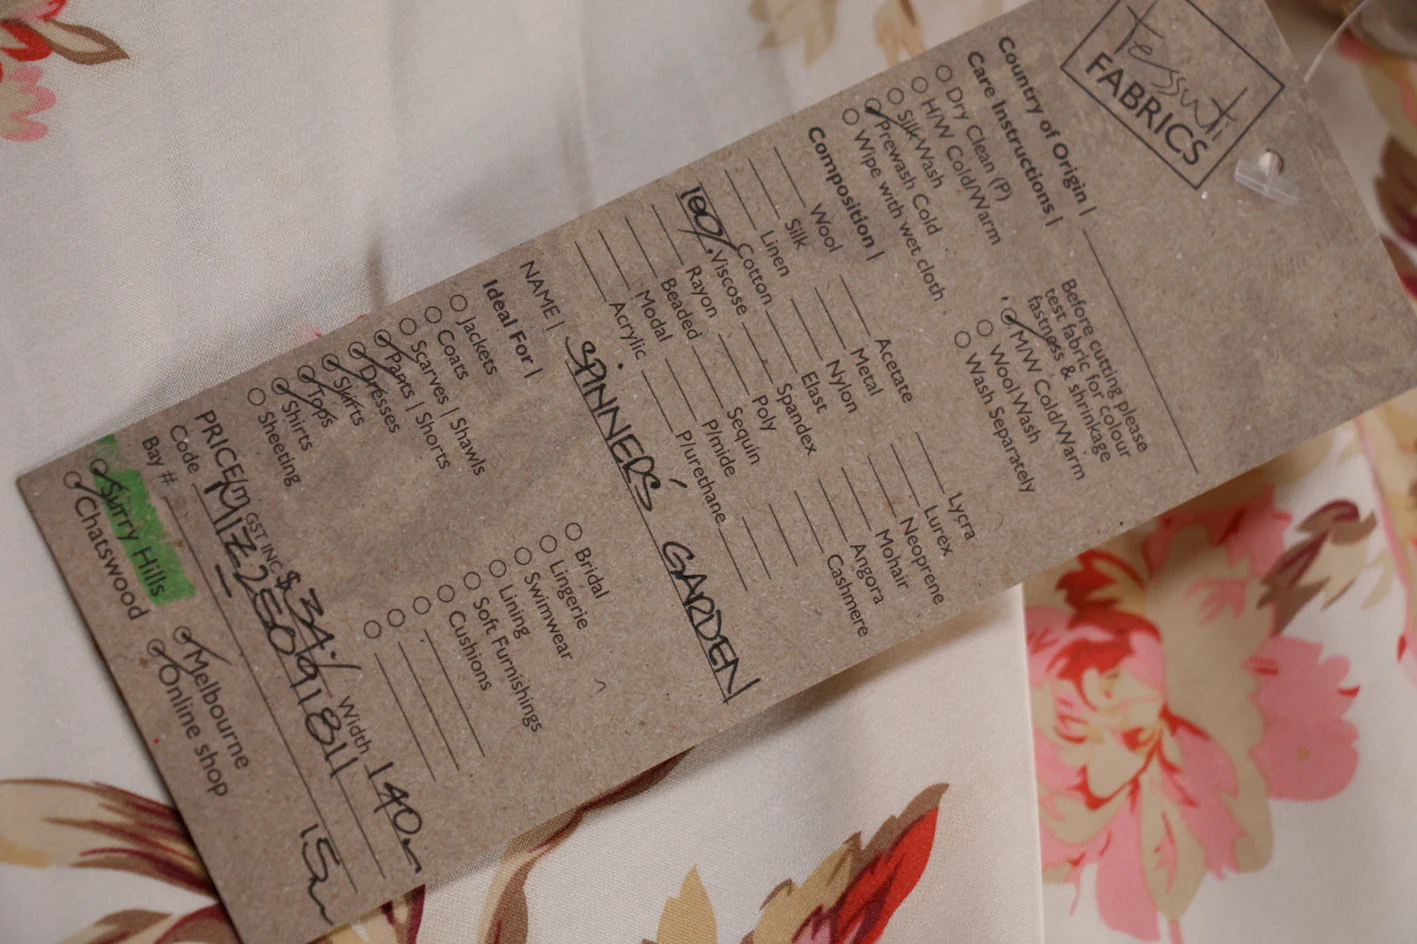 Tessuti
FABRICS
Country of Origin |
Care Instructions |
Dry Clean (P)
H/W Cold/Warm
Silk Wash
Prewash Cold
Wipe with wet cloth
Before cutting please
test fabric for colour
fastness & shrinkage
M/W Cold/Warm
Wool Wash
Wash Separately
Composition |
Wool Acetate Lycra
Silk Metal Lurex
Linen Nylon Neoprene
100% Cotton Elast Mohair
Viscose Spandex Angora
Rayon Poly Cashmere
Beaded Sequin
Modal P/mide
Acrylic P/urethane
NAME | SPINNERS' GARDEN
Ideal For |
Jackets Bridal
Coats Lingerie
Scarves | Shawls Swimwear
Pants | Shorts Lining
Dresses Soft Furnishings
Skirts Cushions
Tops
Shirts
Sheeting
PRICE/m GST INC $34 Width 140
Code
Bay #
15m
Surry Hills Melbourne
Chatswood Online shop